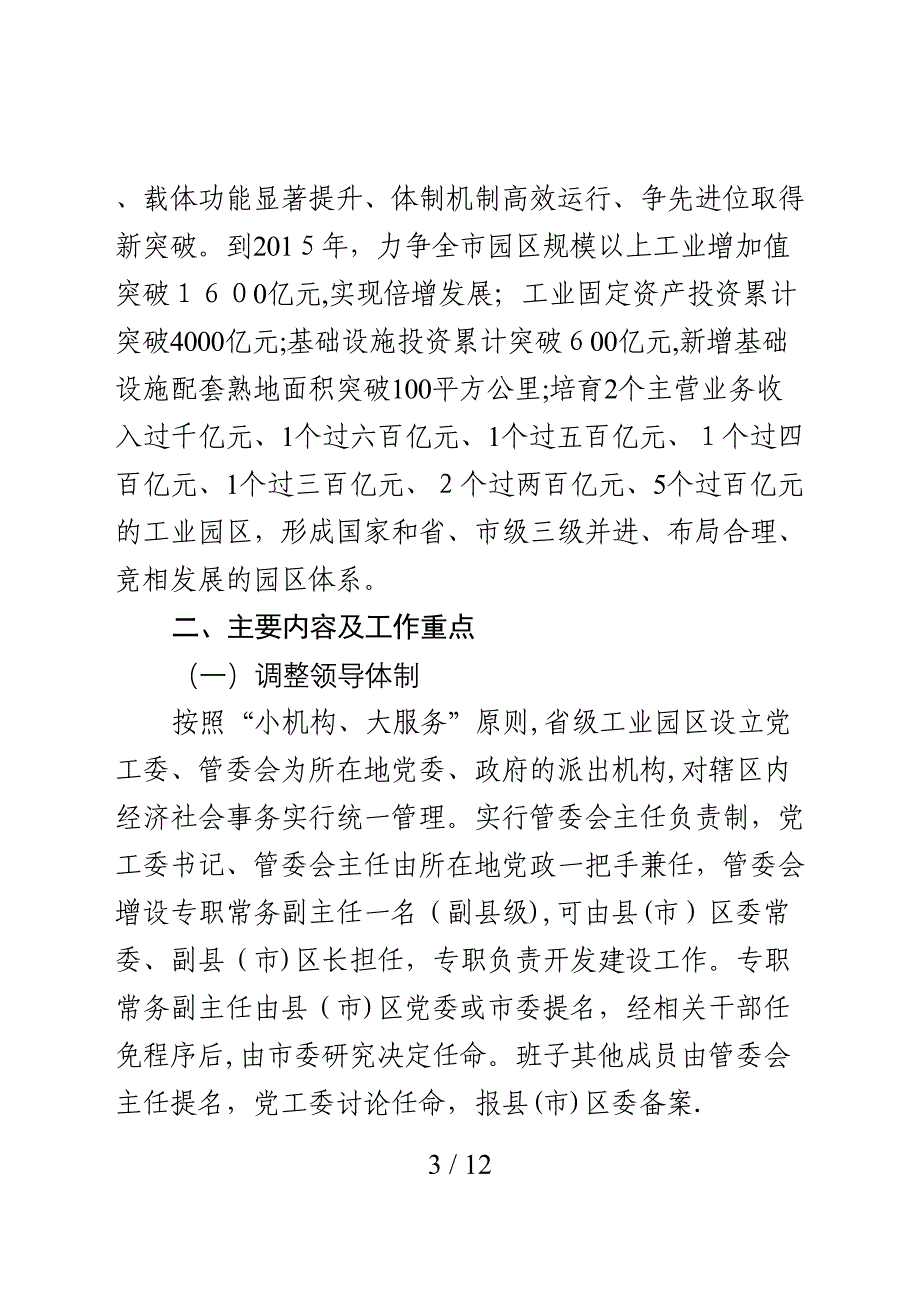 、载体功能显著提升、体制机制高效运行、争先进位取得
新突破。到201５年，力争全市园区规模以上工业增加值
突破１６０0亿元,实现倍增发展；工业固定资产投资累计
突破4000亿元;基础设施投资累计突破６00亿元,新增基础
设施配套熟地面积突破100平方公里;培育2个主营业务收
入过千亿元、1个过六百亿元、1个过五百亿元、１个过四
百亿元、1个过三百亿元、２个过两百亿元、5个过百亿元
的工业园区，形成国家和省、市级三级并进、布局合理、
竞相发展的园区体系。
二、主要内容及工作重点
（一）调整领导体制
按照“小机构、大服务”原则,省级工业园区设立党
工委、管委会为所在地党委、政府的派出机构,对辖区内
经济社会事务实行统一管理。实行管委会主任负责制，党
工委书记、管委会主任由所在地党政一把手兼任，管委会
增设专职常务副主任一名（副县级),可由县(市）区委常
委、副县（市)区长担任，专职负责开发建设工作。专职
常务副主任由县（市)区党委或市委提名，经相关干部任
免程序后,由市委研究决定任命。班子其他成员由管委会
主任提名，党工委讨论任命，报县(市)区委备案.
3 / 12